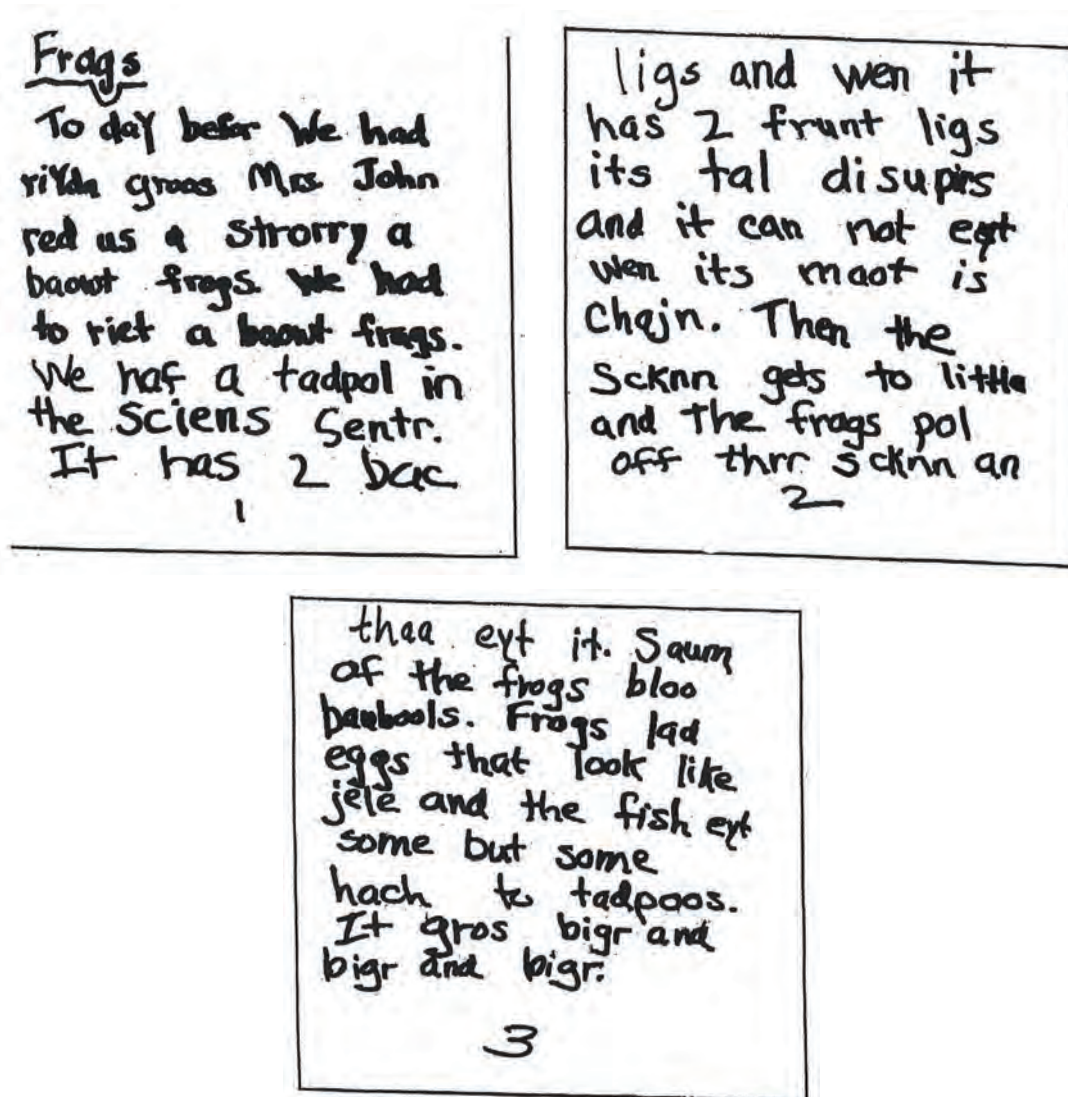 Frags
To day befor We had
riYda groos Mrs. John
red us a Strorry a
baowt frogs. We had
to riet a baowt frags.
We haf a tadpol in
the Sciens Sentr.
It has 2 bac
1
ligs and wen it
has 2 frunt ligs
its tal disupirs
and it can not eyt
wen its maot is
Chajn. Then the
Scknn gets to little
and the frogs pol
off thrr scknn an
2
thaa eyt it. Saum
of the frogs bloo
baubools. Frogs lad
eggs that look like
jele and the fish eyt
some but some
hach to tadpoos.
It gros bigr and
bigr and bigr.
3